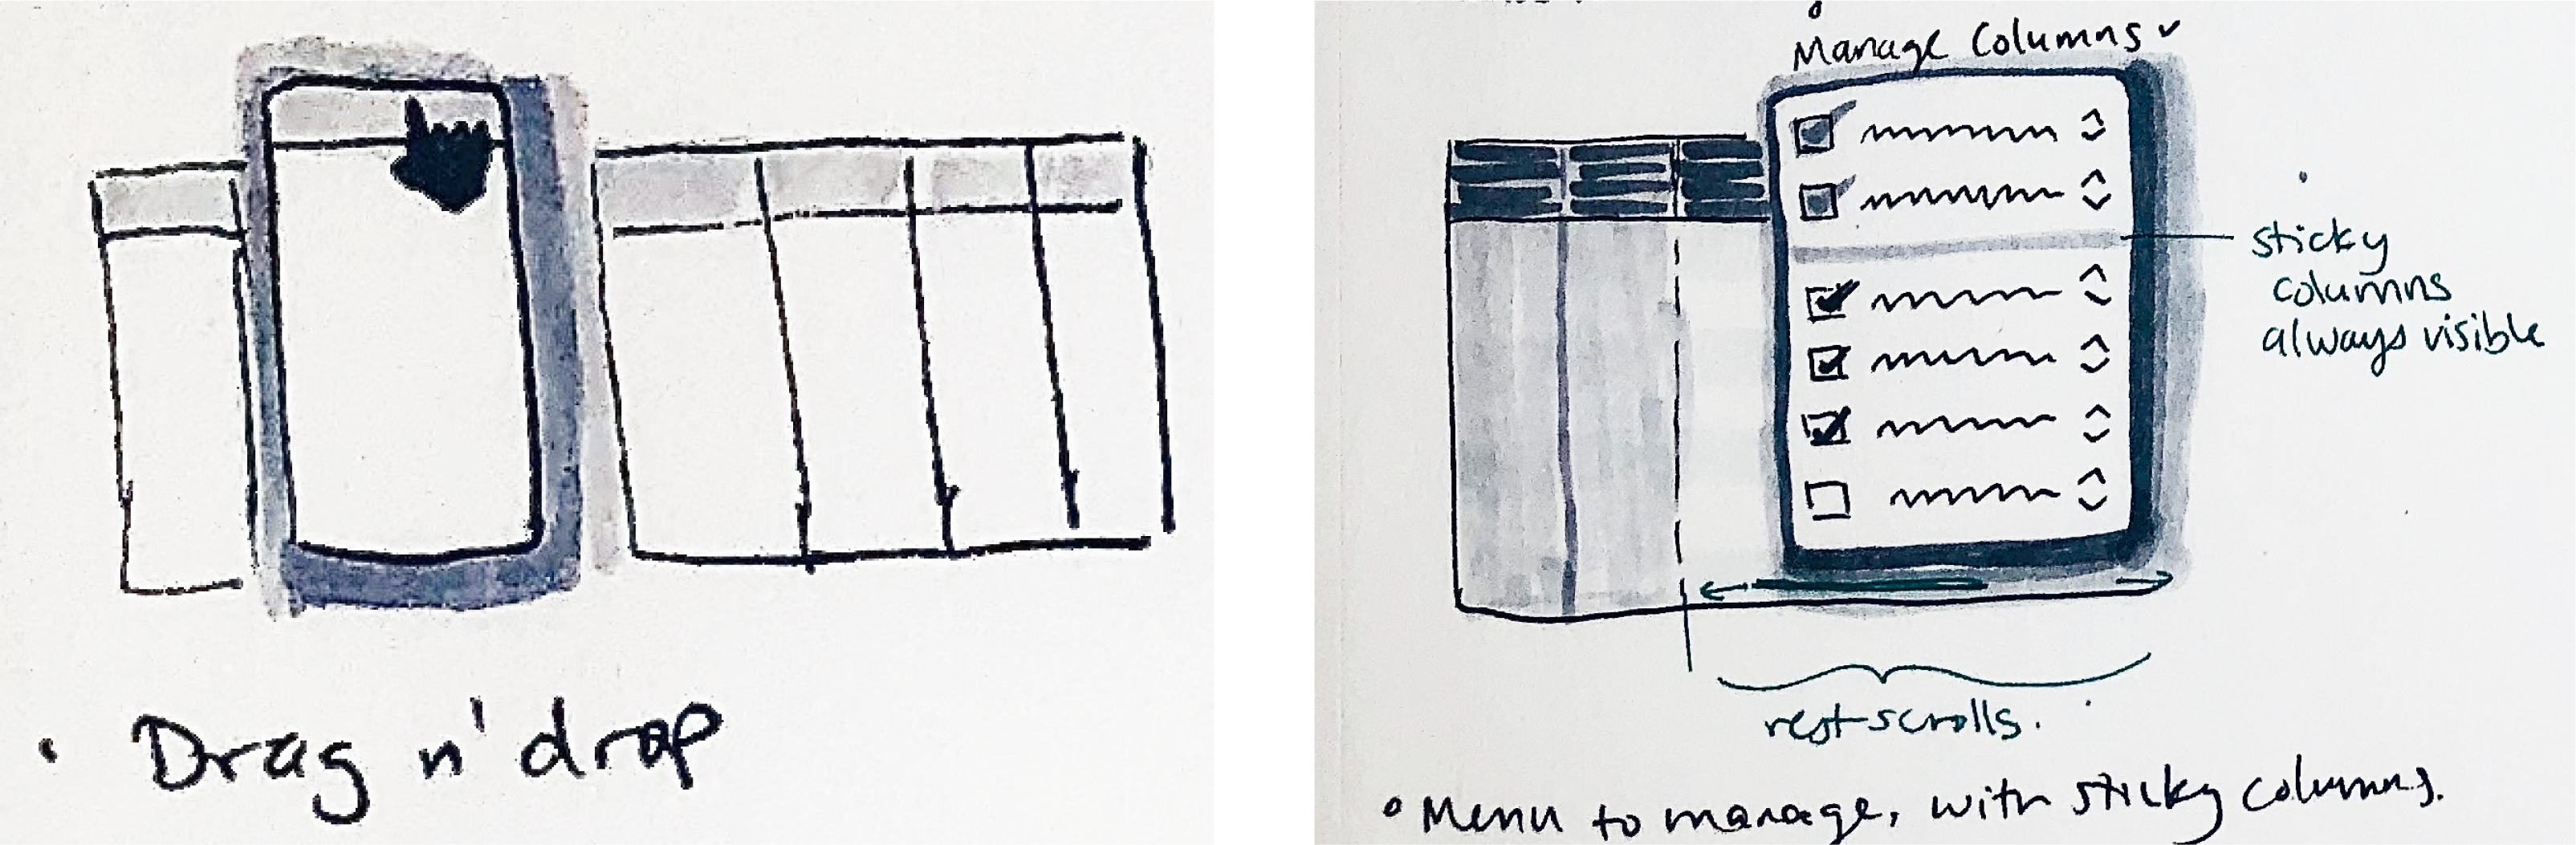 • Drag n' drop
Manage Columns
sticky
columns
always visible
rest scrolls.
• Menu to manage, with sticky columns.